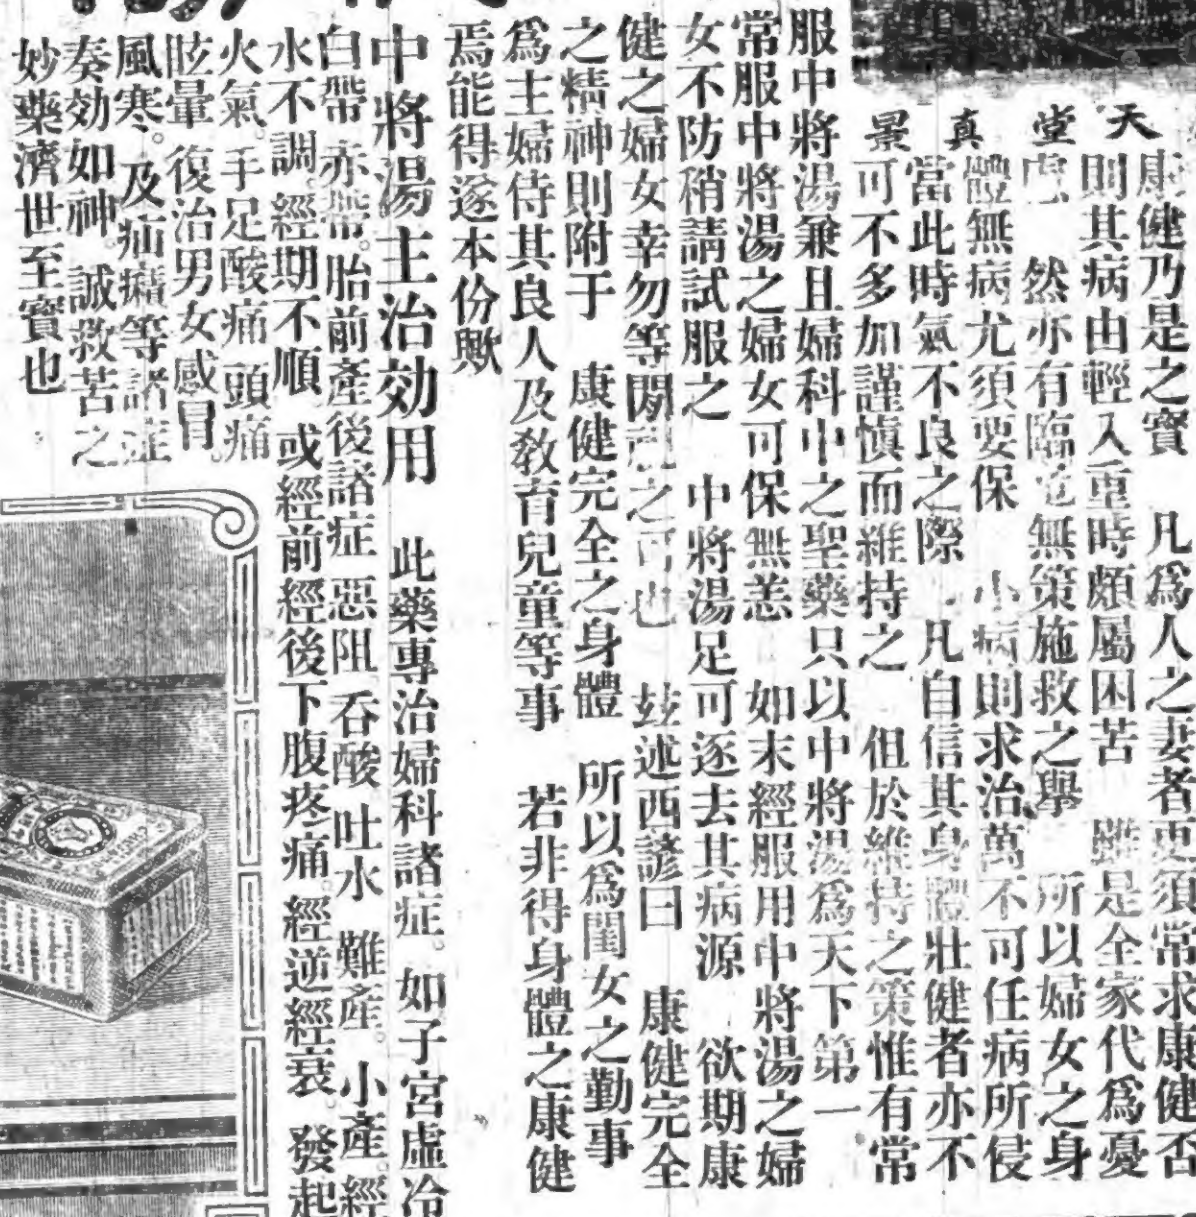 天堂真景
康健乃是之寶　凡爲人之妻者更須常求康健否
則其病由輕入重時頗屬困苦　雖是全家代爲憂
慮　然亦有臨危無策施救之舉　所以婦女之身
體無病尤須要保　小病則求治萬不可任病所侵
當此時氣不良之際　凡自信其身體壯健者亦不
可不多加謹愼而維持之　但於維持之策惟有常
服中將湯兼且婦科中之聖藥只以中將湯爲天下第一
常服中將湯之婦女可保無恙　如未經服用中將湯之婦
女不防稍請試服之　中將湯足可逐去其病源　欲期康
健之婦女幸勿等閒視之可也　玆述西諺曰　康健完全
之精神則附于　康健完全之身體　所以爲閨女之勤事
爲主婦侍其良人及敎育兒童等事　若非得身體之康健
焉能得遂本份歟
中將湯主治効用　此藥專治婦科諸症。如子宮虛冷
白帶　赤帶。胎前產後諸症　惡阻　吞酸。吐水　難產。小產。經
水不調。經期不順　或經前經後下腹疼痛。經逆經衰。發起
火氣。手足酸痛　頭痛
眩暈　復治男女感冒。
風寒。及疝癪等諸症
奏効如神。誠救苦之
妙藥濟世至寳也